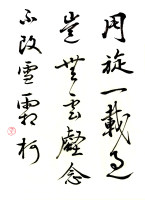 用旋一載過
豈無雲礙念
不改雪霜柯